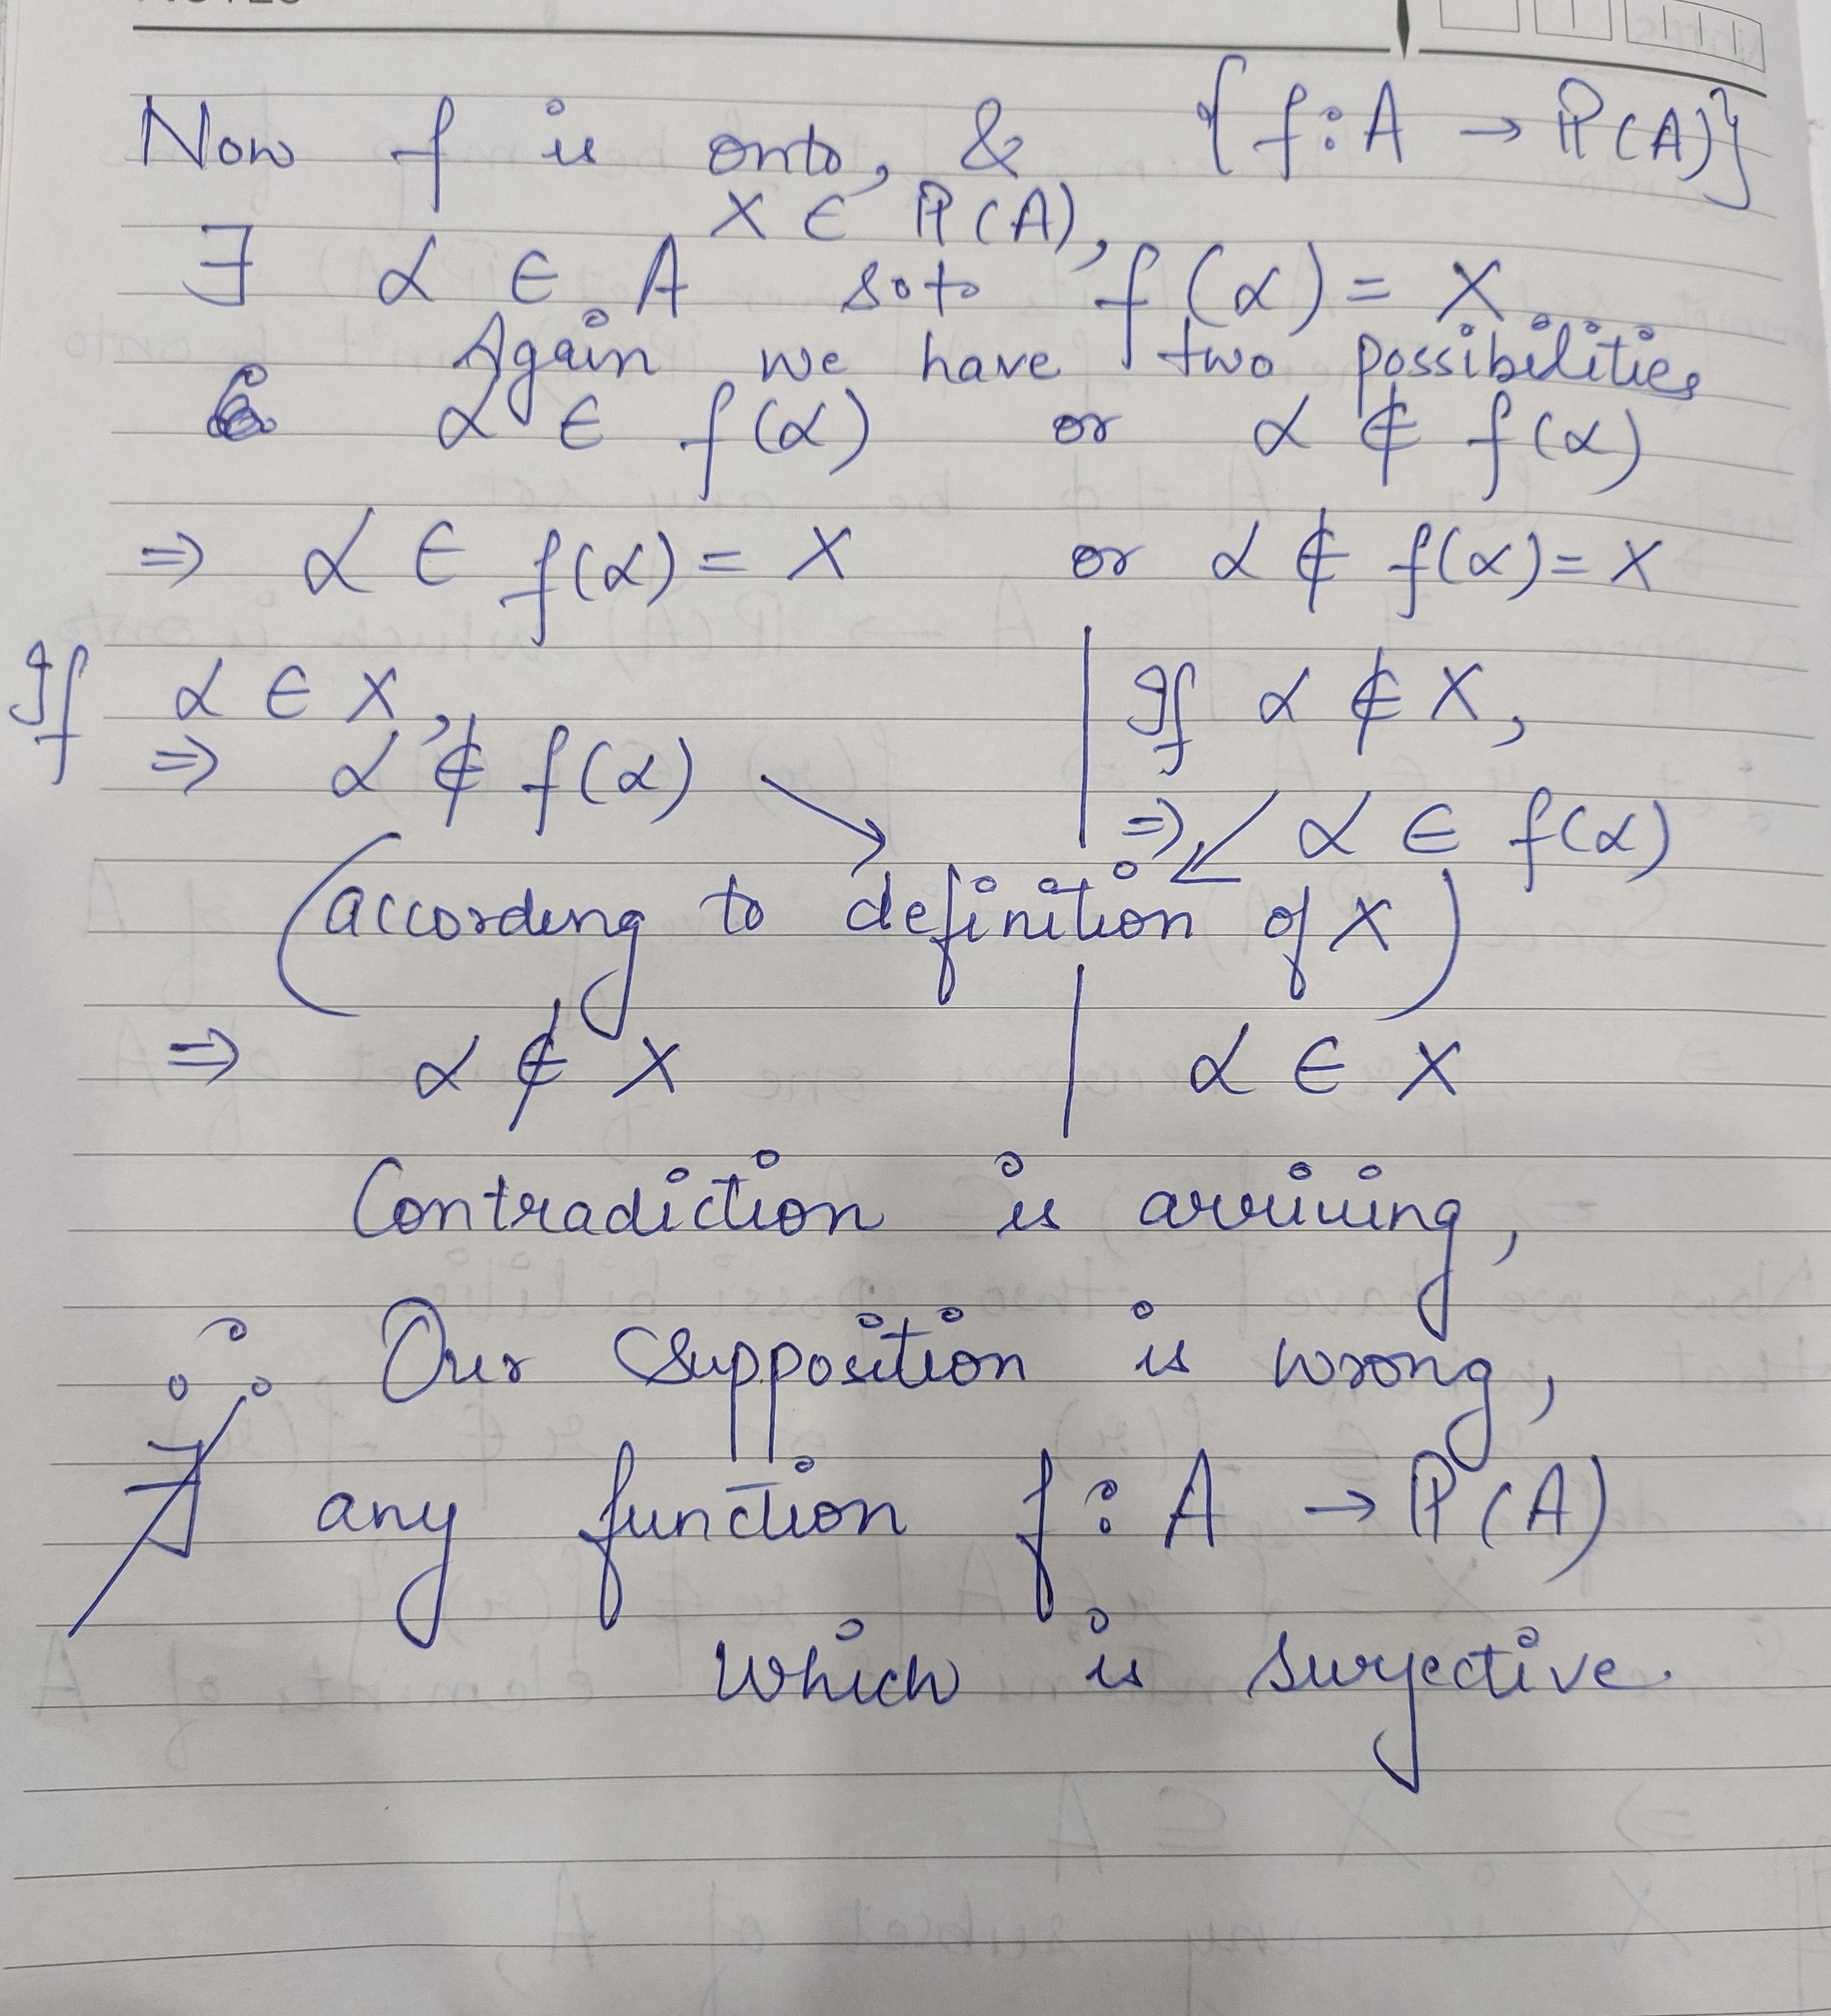 Now f is onto, & {f : A → ℙ(A)}
X ∈ ℙ(A),
∃ α ∈ A s.t. f(α) = X
Again we have two possibilities
α ∈ f(α) or α ∉ f(α)
⇒ α ∈ f(α) = X or α ∉ f(α) = X
If α ∈ X, | If α ∉ X,
⇒ α ∉ f(α) ⇒ α ∈ f(α)
(according to definition of X)
⇒ α ∉ X | α ∈ X
Contradiction is arriving,
∴ Our supposition is wrong,
∄ any function f : A → ℙ(A)
which is surjective.